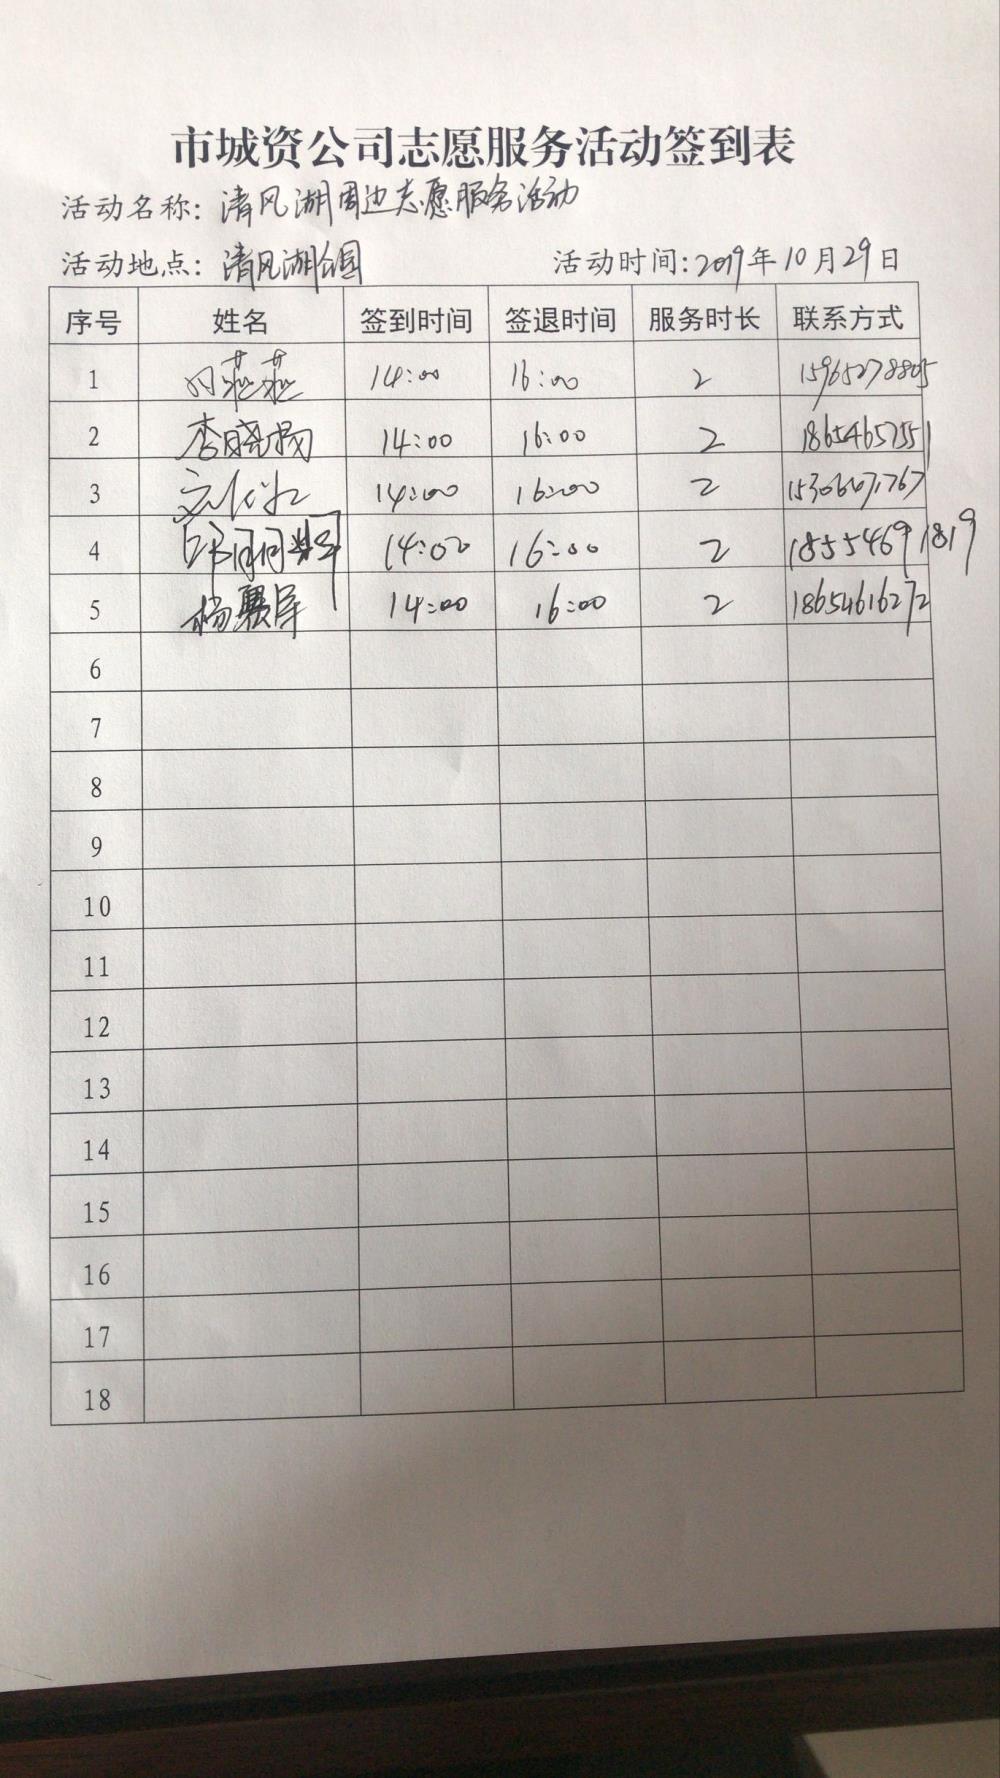 市城资公司志愿服务活动签到表
活动名称: 清风湖周边志愿服务活动
活动地点: 清风湖公园 活动时间: 2019年10月29日
序号 姓名 签到时间 签退时间 服务时长 联系方式
1 14:00 16:00 2 15965278805
2 李晓杨 14:00 16:00 2 18654657551
3 14:00 16:00 2
4 14:00 16:00 2 18554691819
5 14:00 16:00 2 18654616272
6
7
8
9
10
11
12
13
14
15
16
17
18